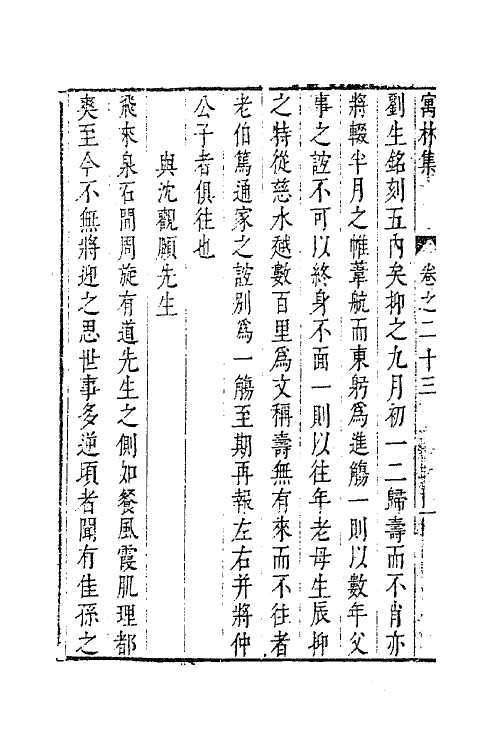 寓林集 卷之二十三
劉生銘刻五內矣抑之九月初一二歸壽而不肖亦
將輟半月之帷葦航而東躬為進觴一則以數年父
事之誼不可以終身不面一則以往年老母生辰抑
之特從慈水越數百里為文稱壽無有來而不往者
老伯篤通家之誼別為一觴至期再報左右并將仲
公子者俱往也
與沈觀頤先生
飛來泉石間周旋有道先生之側如餐風霞肌理都
爽至今不無將迎之思世事多逆項者聞有佳孫之